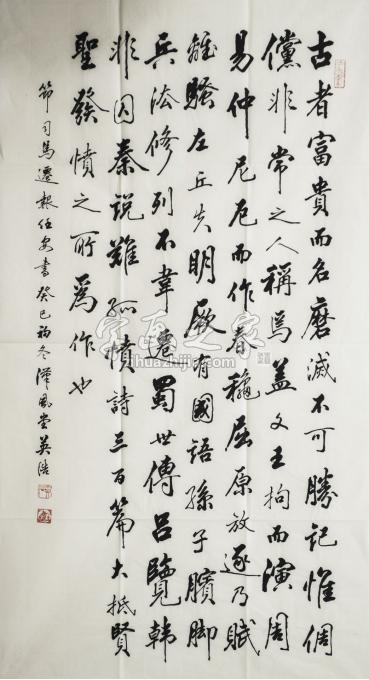 古者富貴而名磨滅不可勝記惟倜
儻非常之人稱焉蓋文王拘而演周
易仲尼厄而作春龝屈原放逐乃賦
離騷左丘失明厥有國語孫子臏脚
兵法修列不韋遷蜀世傳呂覽韓
非囚秦說難孤憤詩三百篇大抵賢
聖發憤之所為作也
節司馬遷報任安書癸巳初冬漢風堂英浩
字画之家
zihuazhijia.com